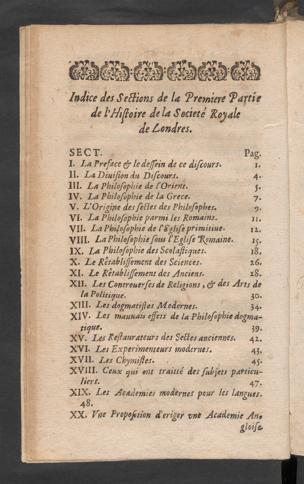 Indice des Sections de la Premiere Partie
de l'Histoire de la Societé Royale
de Londres.
SECT. Pag.
I. La Preface & le dessein de ce discours. 1.
II. La Division du Discours. 4.
III. La Philosophie de l'Orient. 5.
IV. La Philosophie de la Grece. 7.
V. L'Origine des sectes des Philosophes. 9.
VI. La Philosophie parmi les Romains. 11.
VII. La Philosophie de l'Eglise primitive. 12.
VIII. La Philosophie sous l'Eglise Romaine. 15.
IX. La Philosophie des Scolastiques. 18.
X. Le Rêtablissement des Sciences. 26.
XI. Le Rêtablissement des Anciens. 28.
XII. Les Controverses de Religions, & des Arts de
la Politique. 30.
XIII. Les dogmatistes Modernes. 34.
XIV. Les mauvais effets de la Philosophie dogma-
tique. 39.
XV. Les Restaurateurs des Sectes anciennes. 42.
XVI. Les Experimenteurs modernes. 43.
XVII. Les Chymistes. 45.
XVIII. Ceux qui ont traitté des subjets particu-
liers. 47.
XIX. Les Academies modernes pour les langues.
48.
XX. Vne Proposition d'eriger vne Academie An-
gloise